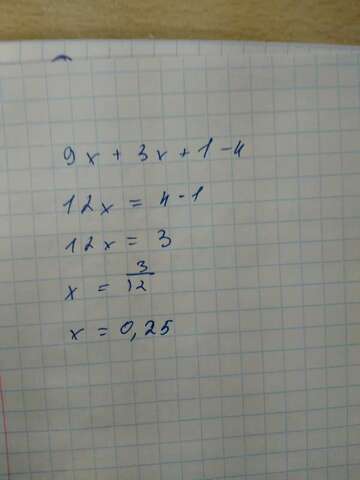 9x + 3x + 1 - 4
12x = 4 - 1
12x = 3
x = 3/12
x = 0,25